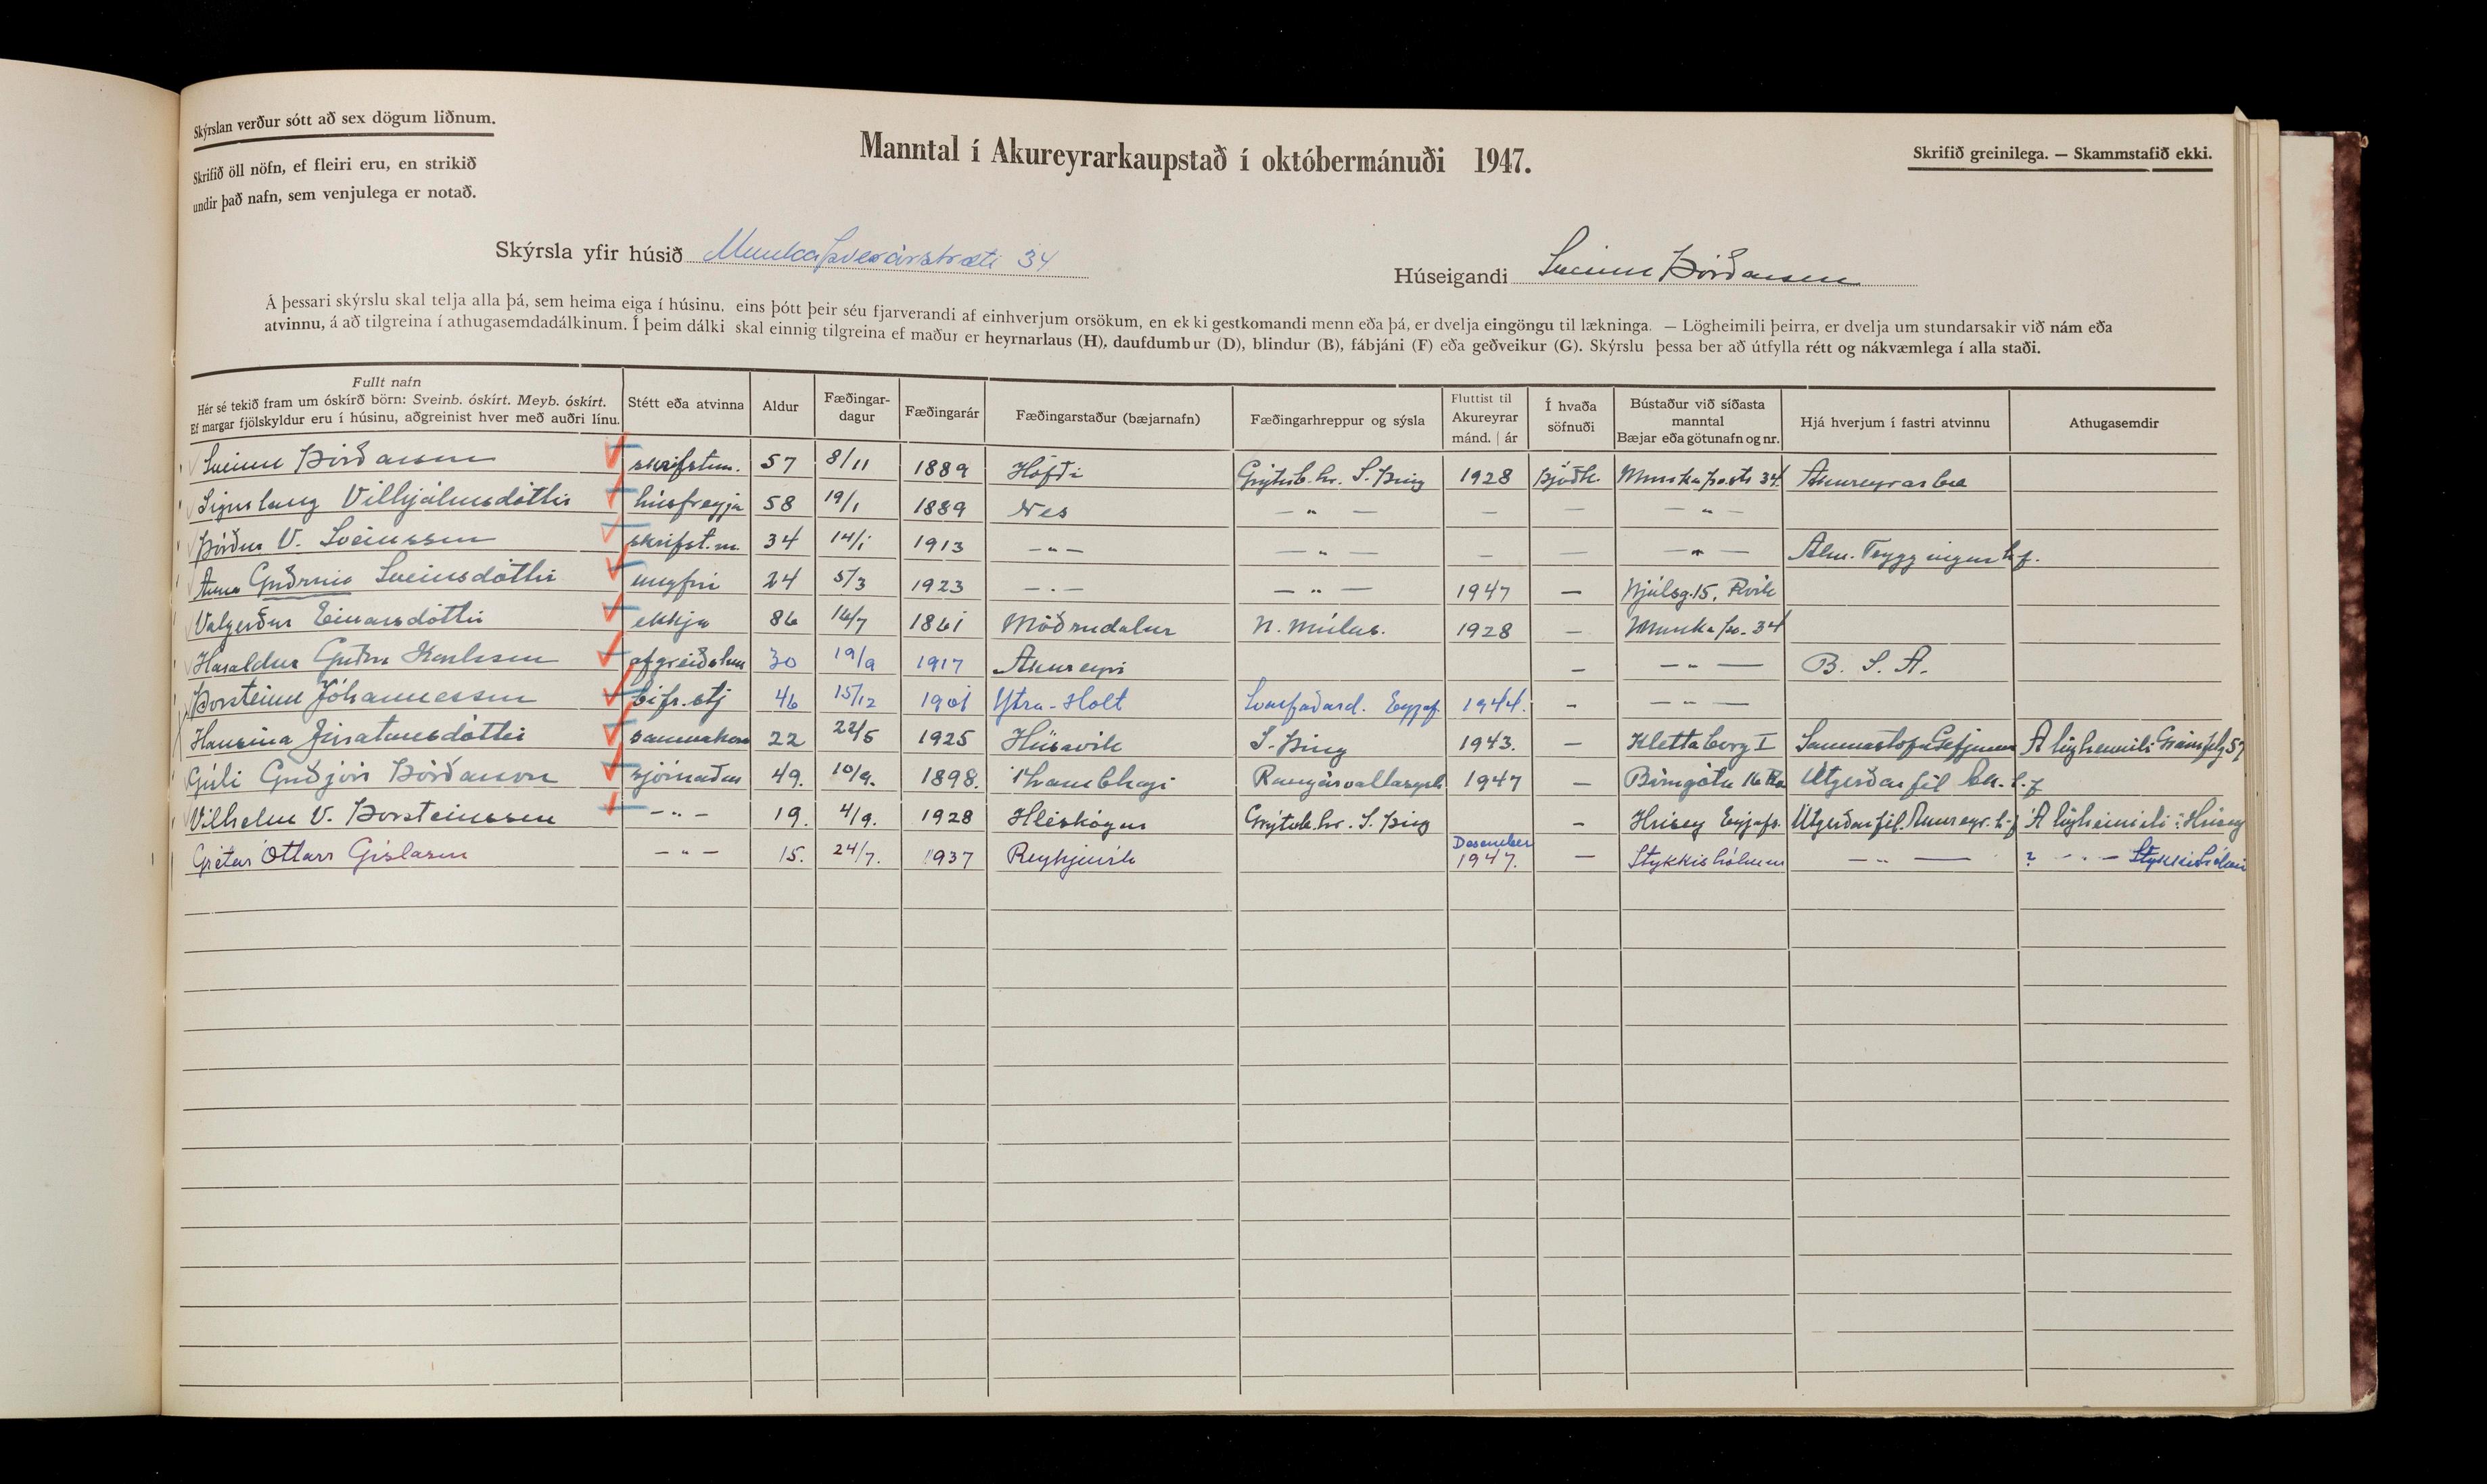 Skýrslan verður sótt að sex dögum liðnum.
Skrifið öll nöfn, ef fleiri eru, en strikið
undir það nafn, sem venjulega er notað.
Manntal í Akureyrarkaupstað í októbermánuði 1947.
Skrifið greinilega. — Skammstafið ekki.
Skýrsla yfir húsið Munkaþverárstræti 34
Húseigandi Sveinn Þórðarson
Á þessari skýrslu skal telja alla þá, sem heima eiga í húsinu, eins þótt þeir séu fjarverandi af einhverjum orsökum, en ekki gestkomandi menn eða þá, er dvelja eingöngu til lækninga. — Lögheimili þeirra, er dvelja um stundarsakir við nám eða
atvinnu, á að tilgreina í athugasemdadálkinum. Í þeim dálki skal einnig tilgreina ef maður er heyrnarlaus (H), daufdumbur (D), blindur (B), fábjáni (F) eða geðveikur (G). Skýrslu þessa ber að útfylla rétt og nákvæmlega í alla staði.
Fullt nafn
Hér sé tekið fram um óskírð börn: Sveinb. óskírt. Meyb. óskírt.
Ef margar fjölskyldur eru í húsinu, aðgreinist hver með auðri línu.
Stétt eða atvinna
Aldur
Fæðingar-
dagur
Fæðingarár
Fæðingarstaður (bæjarnafn)
Fæðingarhreppur og sýsla
Fluttist til
Akureyrar
mánd. | ár
Í hvaða
söfnuði
Bústaður við síðasta
manntal
Bæjar eða götunafn og nr.
Hjá hverjum í fastri atvinnu
Athugasemdir
Sveinn Þórðarson skrifstm. 57 8/11 1889 Höfði Grýtub.hr. S.Þing 1928 Þjóðk. Munkaþv.str 34. Akureyrarbæ
Sigurlaug Vilhjálmsdóttir húsfreyja 58 19/1 1889 Nes — " — — — — " —
Þórður V. Sveinsson skrifst.m. 34 14/1 1913 — " — — " — — — — " — Alm. Tryggingar h.f.
Anna Guðrún Sveinsdóttir ungfrú 24 5/3 1923 — " — — " — 1947 — Njálsg. 15. Rvík
Valgerður Einarsdóttir ekkja 86 14/7 1861 Möðrudalur N. Múlas. 1928 — Munkaþv. 34
Haraldur Guðm Karlsson afgreiðslum 30 19/9 1917 Akureyri — — " — B. S. A.
Þorsteinn Jóhannesson bifr.stj 46 15/12 1901 Ytra-Holt Svarfaðard. Eyjaf. 1944. - — " —
Hansína Jónatansdóttir saumakona 22 22/5 1925 Húsavík S-Þing 1943. — Kletta borg I Saumastofu Gefjunar Á lögheimili Gránufélg 57
Gísli Guðjón Þórðarson sjómaður 49. 10/9. 1898. Lambhagi Rangárvallasýsla 1947 — Útgerðarfél Ak. h.f
Vilhelm V. Þorsteinsson — " — 19. 4/9. 1928 Hléskógur Grýtub.hr. S. Þing — Hrísey Eyjafs. Útgerðarfél. Akureyr. h.f Á lögheimili í Hrísey
Grétar Ottarr Gíslason — " — 15. 24/7. 1937 Reykjavík Desember 1947. — Stykkishólmur — " — ? - " - Stykkishólmi